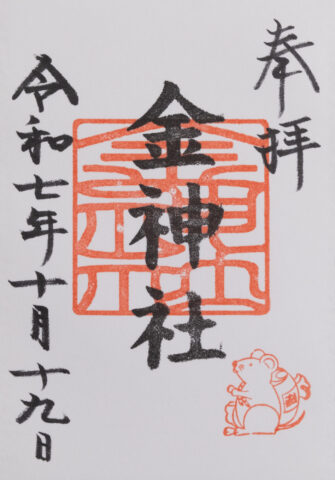 奉拝
金神社
令和七年十月十九日